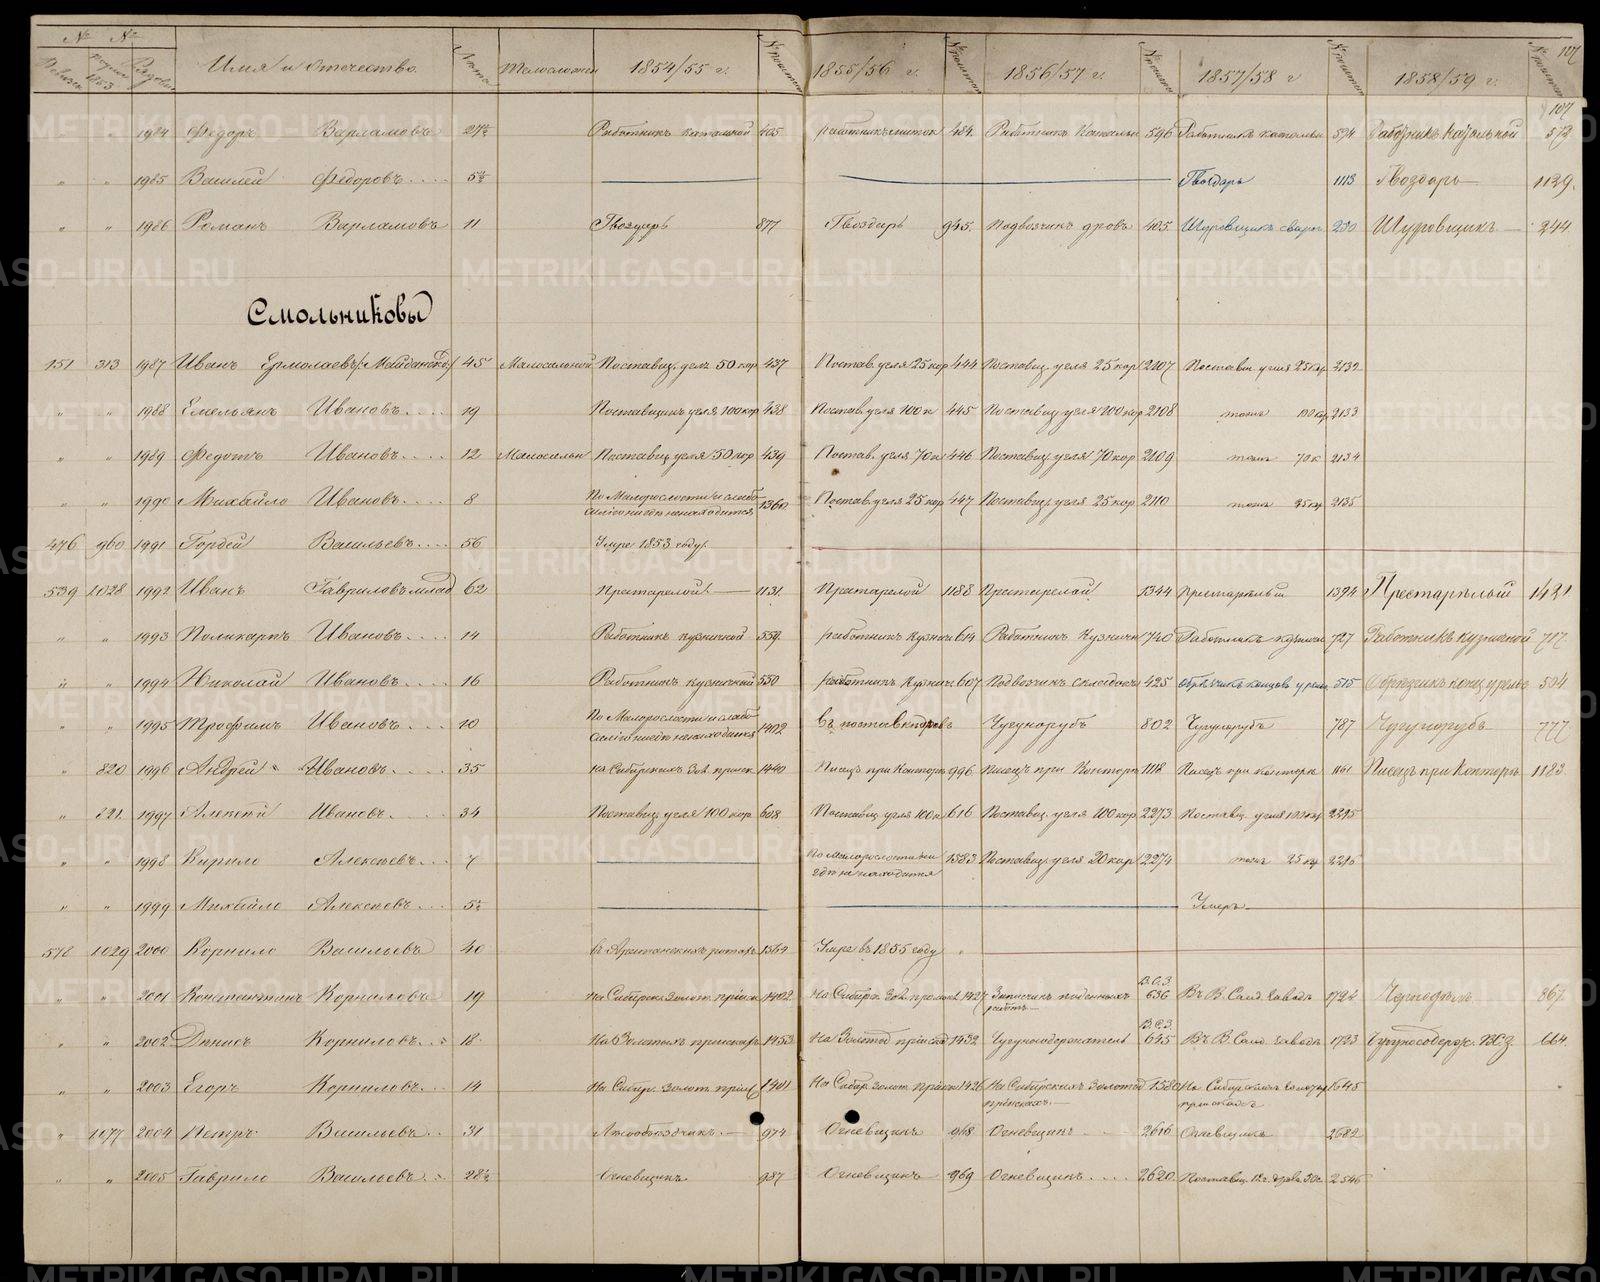 № № Имя и Отчество Лѣта Тѣлосложен 1854/55 г. 1855/56 г. 1856/57 г. 1857/58 г. 1858/59 г. 107
107
" " 1984 Федоръ Варламовъ 27½ Работникъ катальной 405 работникъ 484 Работникъ 596 Работникъ 594 Работникъ катальной 573
" " 1985 Василей Федоровъ 5½ Гвоздарь 1113 Гвоздарь 1129.
" " 1986 Романъ Варламовъ 11 Гвоздарь 877 Гвоздарь 945. Подвозчикъ дровъ 405 Шуровщикъ свароч 230 Шуровщикъ 244
Смольниковы
151 313 1987 Иванъ Ермолаевъ 45 Малосильной Поставщ. угля 50 кор 437 Постав. угля 25 кор 444 Поставщ угля 25 кор 2107 Поставщ угля 25 кор 2132
" " 1988 Емельянъ Ивановъ 19 Поставщикъ угля 100 кор 438 Постав. угля 100 к 445 Поставщ угля 100 кор 2108 тоже 100 кор 2133
" " 1989 Федотъ Ивановъ 12 Малосильн Поставщ угля 50 кор 439 Постав. угля 70 к 446 Поставщ угля 70 кор 2109 тоже 70 к 2134
" " 1990 Михайло Ивановъ 8 По Малорослости и слабосилію нигдѣ не находится 1360 Постав. угля 25 кор 447 Поставщ. угля 25 кор 2110 тоже 25 кор 2135
476 960 1991 Гордей Васильевъ 56 Умре 1853 году.
539 1028 1992 Иванъ Гавриловъ млад 62 Престарелой 1131. Престарелой 1188 Престарелой 1344 Престарѣлый 1394 Престарѣлый 1421
" " 1993 Поликарпъ Ивановъ 14 Работникъ кузничной 559 работникъ Кузнич 614 Работникъ Кузничн 740 Работникъ кузничн 727 Работникъ кузничной 717.
" " 1994 Николай Ивановъ 16 Работникъ кузничной 550 работникъ Кузнич 607 Подвозчикъ 425 обрѣзчикъ концовъ у рельс 515 Обрѣзчикъ конц у рельс 504
" " 1995 Трофимъ Ивановъ 10 По Малорослости и слабосилію нигдѣ не находится 1402 Чугунорубъ 802 Чугунорубъ 787 Чугунорубъ 777
" 820 1996 Андрей Ивановъ 35 на Сибирскомъ Зол. приск 1440 Писецъ при Конторѣ 996 Писецъ при Конторѣ 1118 Писецъ при конторѣ 1161 Писецъ при Конторѣ 1183
" 821. 1997 Алексей Ивановъ 34 Поставщ угля 100 кор 608 Поставщ угля 100 к 616 Поставщ. угля 100 кор 2273 Поставщ. угля 100 кор 2215
" " 1998 Кирило Алексѣевъ 7 По Малорослости нигдѣ не находится 1583 Поставщ. угля 20 кор 2274 тоже 25 кор 2216
" " 1999 Михайло Алексѣевъ 5½ Умеръ
578 1029 2000 Корнило Васильевъ 40 въ Арестанскихъ ротахъ 1364 Умре въ 1855 году
" " 2001 Константинъ Корниловъ 19 На Сибирск. Золот. пріиск 1402. На Сибирск. Зол. промысл 1427 Записчикъ поденныхъ работъ В.С.З. 636 Въ В. Салд. Заводѣ 1724 867
" " 2002 Денисъ Корниловъ 18 На Золотыхъ прискахъ 1453 На Золотод пріисках 1432 Чугуносодержатель В.С.З. 645 Въ В. Салд. Заводѣ 1723 Чугуносодерж. В.С.З. 664.
" " 2003 Егоръ Корниловъ 14 На Сибир. золот пріис 1401 На Сибир Золот Пріиск 1426 На Сибирскихъ Золотыхъ пріискахъ 1580 На Сибирскихъ Золотых пріискахъ 1645
" 1077 2004 Петръ Васильевъ 31 Лѣсообъѣздчикъ 974 Огневщикъ 968 Огневщикъ 2616 Огневщикъ 2682
" " 2005 Гаврило Васильевъ 28½ Огневщикъ 987 Огневщикъ 969 Огневщикъ 2620 Поставщ. дровъ 50 с 2546
METRIKI.GASO-URAL.RU